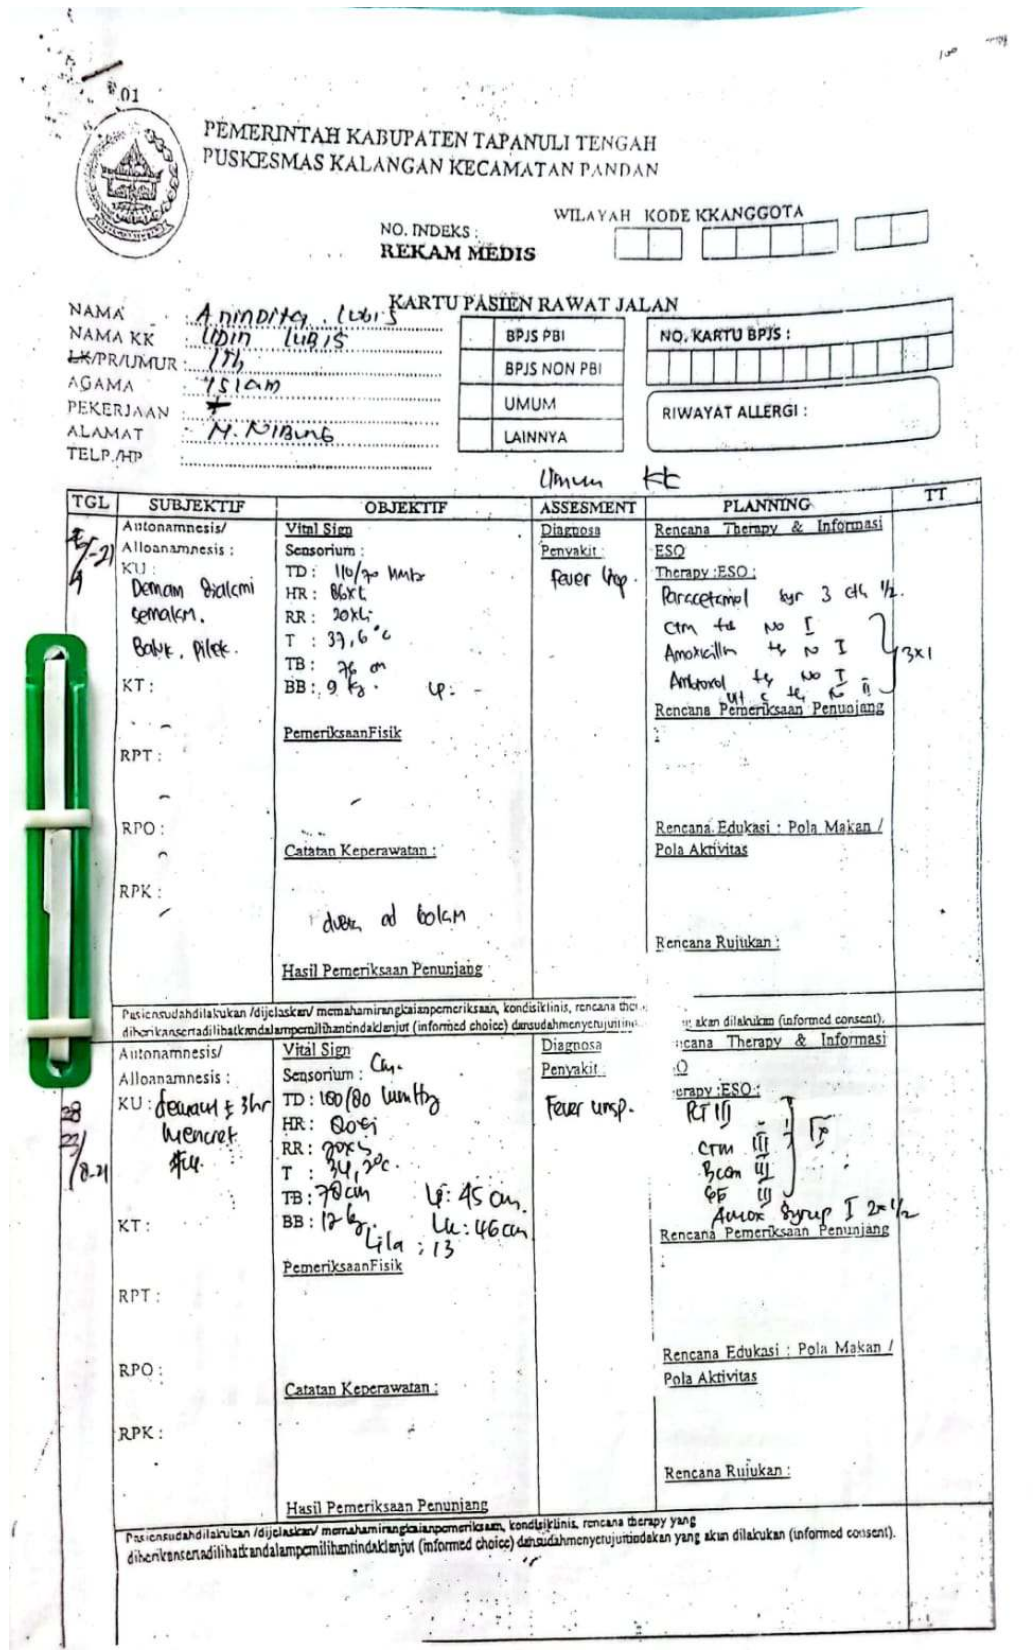 01
PEMERINTAH KABUPATEN TAPANULI TENGAH
PUSKESMAS KALANGAN KECAMATAN PANDAN
WILAYAH KODE KKANGGOTA
NO. INDEKS :
REKAM MEDIS
KARTU PASIEN RAWAT JALAN
NAMA : Anindita. Lubis
NAMA KK : Udin Lubis
LK/PR/UMUR : 1Th
AGAMA : Islam
PEKERJAAN :
ALAMAT : M. Nibung
TELP./HP :
BPJS PBI
BPJS NON PBI
UMUM
LAINNYA
NO. KARTU BPJS :
RIWAYAT ALLERGI :
Umum KK
TGL SUBJEKTIF OBJEKTIF ASSESMENT PLANNING TT
Autonamnesis/
Alloanamnesis :
KU :
Demam dialami
semalam.
Batuk. Pilek.
KT :
RPT :
RPO :
RPK :
Vital Sign
Sensorium :
TD : 110/70 mmHg
HR : 86x/i
RR : 20x/i
T : 37,6°c
TB : 76 cm
BB : 9 kg. LP: -
PemeriksaanFisik
Catatan Keperawatan :
Hasil Pemeriksaan Penunjang
Diagnosa
Penyakit :
Fever Unsp.
Rencana Therapy & Informasi
ESO
Therapy :ESO :
Paracetamol syr 3 cth 1/2.
Ctm tab No I
Amoxicillin N I
Ambroxol No I
3x1
Rencana Pemeriksaan Penunjang
:
Rencana Edukasi : Pola Makan /
Pola Aktivitas
Rencana Rujukan :
Pasiensudahdilakukan /dijelaskan/ memahamirangkaianpemeriksaan, kondisiklinis, rencana
diberikansertadilibatkandalampemilihantindaklanjut (informed choice) dansudahmenyetujui akan dilakukan (informed consent).
Autonamnesis/
Alloanamnesis :
KU : demam ± 3hr
mencret
KT :
RPT :
RPO :
RPK :
Vital Sign
Sensorium : Cm.
TD : 100/80 mmHg
HR : 80x/i
RR : 20x/i
T : 34,2°c.
TB : 78 cm LP: 45 cm.
BB : 12 kg. LK: 46 cm
Lila : 13
PemeriksaanFisik
Catatan Keperawatan :
Hasil Pemeriksaan Penunjang
Diagnosa
Penyakit :
Fever unsp.
Therapy & Informasi
:ESO :
PCT III
CTM III
Bcom III
GG III
Amox Syrup I 2x1/2
Rencana Pemeriksaan Penunjang
:
Rencana Edukasi : Pola Makan /
Pola Aktivitas
Rencana Rujukan :
Pasiensudahdilakukan /dijelaskan/ memahamirangkaianpemeriksaan, kondisiklinis, rencana therapy yang
diberikansertadilibatkandalampemilihantindaklanjut (informed choice) dansudahmenyetujuitindakan yang akan dilakukan (informed consent).